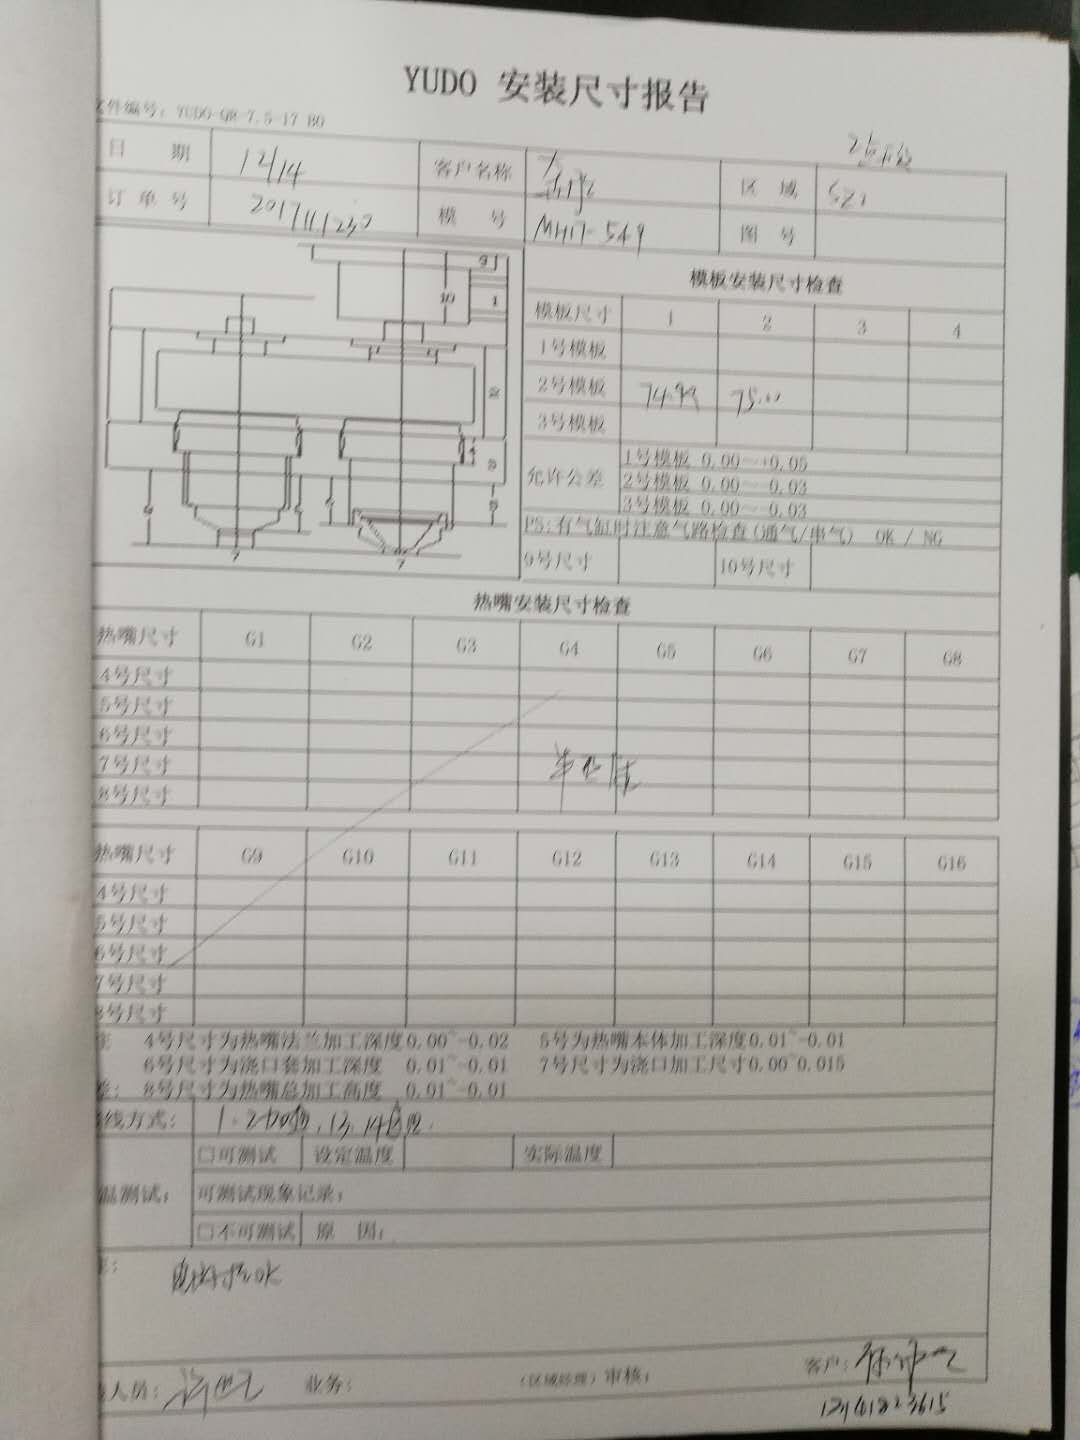 YUDO 安装尺寸报告
文件编号: YUDO-QR-7.5-17 B0
日 期 12/14 客户名称 区 域 SZ1
订单号 20171111230 模 号 MH17-549 图 号
模板安装尺寸检查
模板尺寸 1 2 3 4
1号模板
2号模板 74.99 75.00
3号模板
允许公差 1号模板 0.00~+0.05
2号模板 0.00~-0.03
3号模板 0.00~-0.03
PS:有气缸时注意气路检查(通气/串气) OK / NG
9号尺寸 10号尺寸
热嘴安装尺寸检查
热嘴尺寸 G1 G2 G3 G4 G5 G6 G7 G8
4号尺寸
5号尺寸
6号尺寸
7号尺寸
8号尺寸
热嘴尺寸 G9 G10 G11 G12 G13 G14 G15 G16
4号尺寸
5号尺寸
6号尺寸
7号尺寸
8号尺寸
4号尺寸为热嘴法兰加工深度0.00~-0.02 5号为热嘴本体加工深度0.01~-0.01
6号尺寸为浇口套加工深度 0.01~-0.01 7号尺寸为浇口加工尺寸0.00~0.015
8号尺寸为热嘴总加工高度 0.01~-0.01
线方式:
□可测试 设定温度 实际温度
温测试: 可测试现象记录:
□不可测试 原 因:
人员: 业务: (区域经理)审核: 客户: